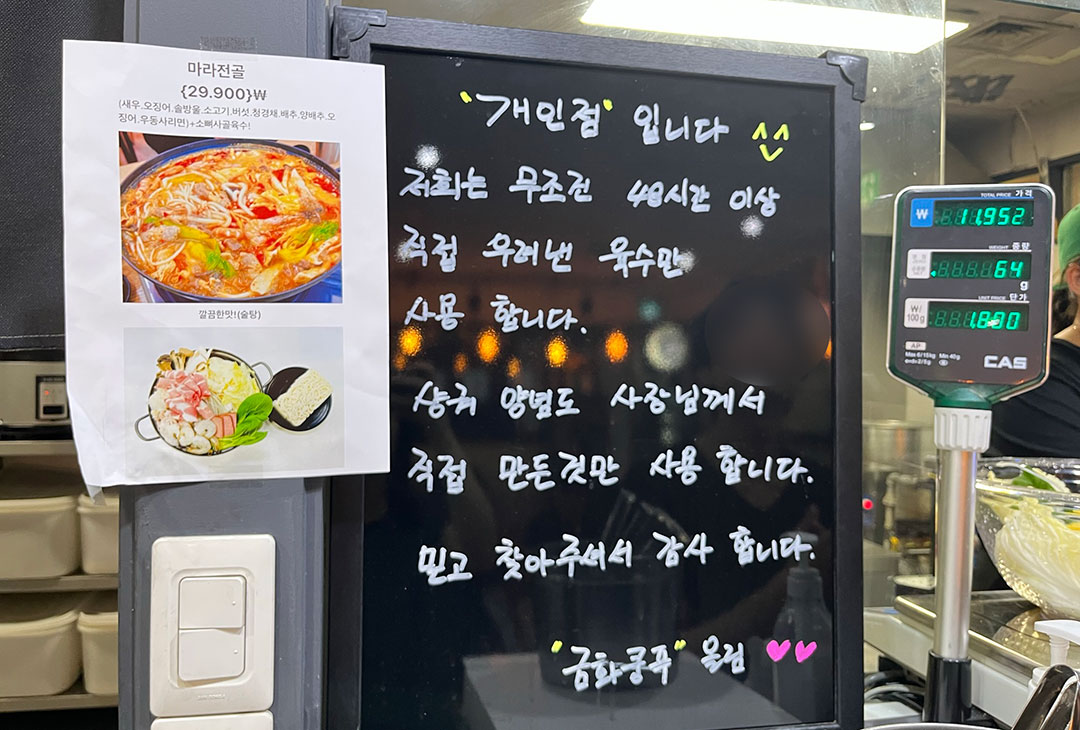 마라전골
{29.900}₩
(새우.오징어.솔방울.소고기.버섯.청경채.배추.양배추.오
징어.우동사리면)+소뼈사골육수!
깔끔한맛!(술탕)
"개인점" 입니다
저희는 무조건 48시간 이상
직접 우려낸 육수만
사용 합니다.
샹궈 양념도 사장님께서
직접 만든것만 사용 합니다.
믿고 찾아주셔서 감사 합니다.
"금화쿵푸" 올림
TOTAL PRICE 가격
₩ 11,952
WEIGHT 중량
64
g
UNIT PRICE 단가
₩/
100g
AP
CAS